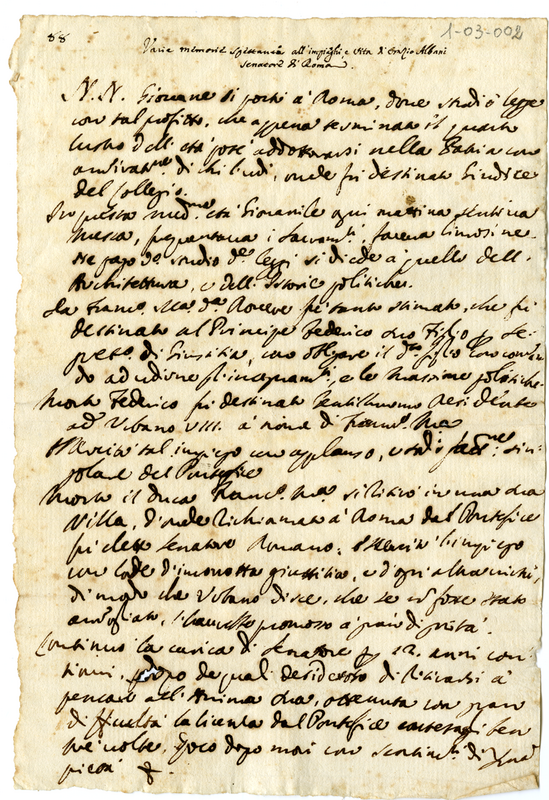 88
1-03-002
Varie memorie spettanti all'impieghi e vita d'Orazio Albani
Senatore di Roma
N. N. Giovane si portò à Roma, dove studiò legge
con tal profitto, che appena terminato il quarto
lustro dell'età potè addottorarsi nella Patria con
di chi l'udì, onde fù destinato Giudice
del Collegio.
In questa med.ma età Giovanile ogni mattina sentiva
messa, frequentava i Sacram.ti, faceva limosine.
Ne pago do studio de leggi si diede à quello dell'
Architettura, e dell'Istorie politiche.
Da Franc.o M.a da Rovere fù tanto stimato, che fù
destinato al Principe Federico suo Figlio p
di Giustitia, con obligare il d.o figlio
do ad udirne gl'insegnam.ti, e le massime politiche.
Morto Federico fù destinato Gentilhuomo Residente
ad Urbano VIII. à nome di Franc.o M.a
Esercitò tal impiego con applauso, e
del Pontefice
Morto il Duca Franc.o M.a si ritirò in una sua
Villa, d'onde richiamato à Roma dal Pontefice
fù eletto Senatore Romano: Esercitò l'impiego
con lode d'incorrotta giustitia, e d'ogni altra virtù,
di modo che Urbano disse, che se non fosse stato
ammogliato, l'havrebbe promosso à gradi di
Continuò la carica di Senatore p 12. anni con-
tinui, dopo de quali desideroso di ritirarsi à
pensare all'Anima sua, ottenuta con gran
difficoltà la licenza dal Pontefice
più volte, poco dopo morì con sentim.ti di
pietà